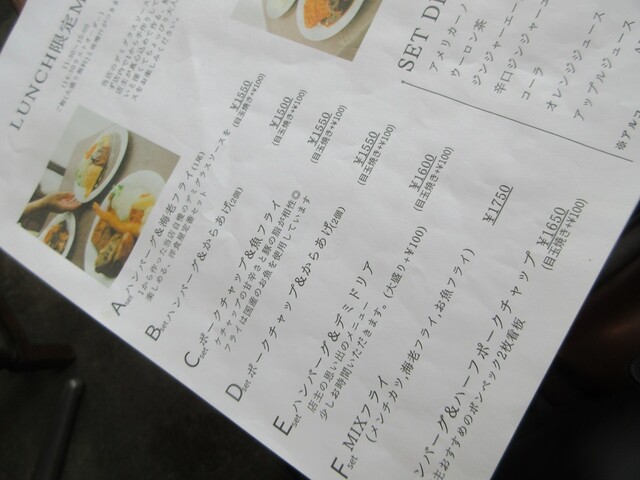 LUNCH限定M
Aset ハンバーグ&海老フライ(1尾) ¥1550
(目玉焼き+¥100)
1から作った当店自慢のデミグラスソースを
楽しめる、洋食屋定番セット
Bset ハンバーグ&からあげ(2個) ¥1500
(目玉焼き+¥100)
Cset ポークチャップ&魚フライ ¥1550
(目玉焼き+¥100)
ケチャップの甘辛さと豚の脂が相性◎
フライは国産のお魚を使用しています
Dset ポークチャップ&からあげ(2個) ¥1550
(目玉焼き+¥100)
Eset ハンバーグ&デミドリア ¥1600
(目玉焼き+¥100)
店主の思い出のメニュー
少しお時間いただきます。(大盛り+¥100)
Fset MIXフライ ¥1750
(メンチカツ,海老フライ,お魚フライ)
ンバーグ&ハーフポークチャップ ¥1650
(目玉焼き+¥100)
主おすすめのポンペック2枚看板
SET D
アメリカーノ
ウーロン茶
ジンジャーエー
辛口ジンジャーエ
コーラ
オレンジジュース
アップルジュース
※アルコ